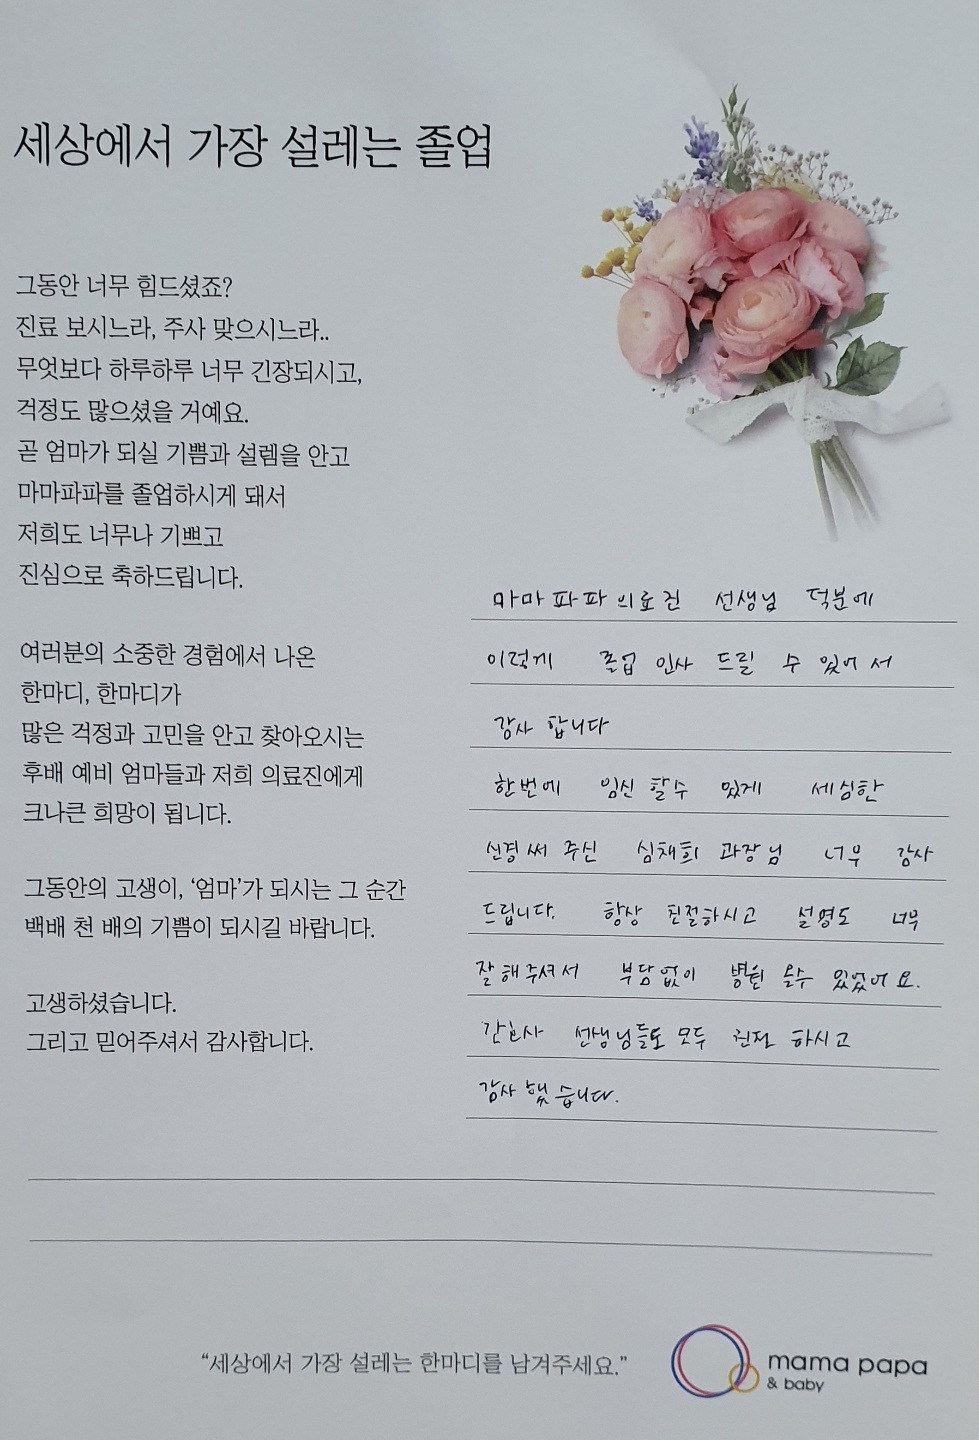 세상에서 가장 설레는 졸업
그동안 너무 힘드셨죠?
진료 보시느라, 주사 맞으시느라..
무엇보다 하루하루 너무 긴장되시고,
걱정도 많으셨을 거예요.
곧 엄마가 되실 기쁨과 설렘을 안고
마마파파를 졸업하시게 돼서
저희도 너무나 기쁘고
진심으로 축하드립니다.
여러분의 소중한 경험에서 나온
한마디, 한마디가
많은 걱정과 고민을 안고 찾아오시는
후배 예비 엄마들과 저희 의료진에게
크나큰 희망이 됩니다.
그동안의 고생이, '엄마'가 되시는 그 순간
백배 천 배의 기쁨이 되시길 바랍니다.
고생하셨습니다.
그리고 믿어주셔서 감사합니다.
마마파파의료진 선생님 덕분에
이렇게 졸업 인사 드릴 수 있어서
감사 합니다
한번에 임신 할수 있게 세심한
신경써 주신 심채희 과장님 너무 감사
드립니다. 항상 친절하시고 설명도 너무
잘해주셔서 부담없이 병원 올수 있었어요.
간호사 선생님들도 모두 친절 하시고
감사 했습니다.
"세상에서 가장 설레는 한마디를 남겨주세요."
mama papa
& baby